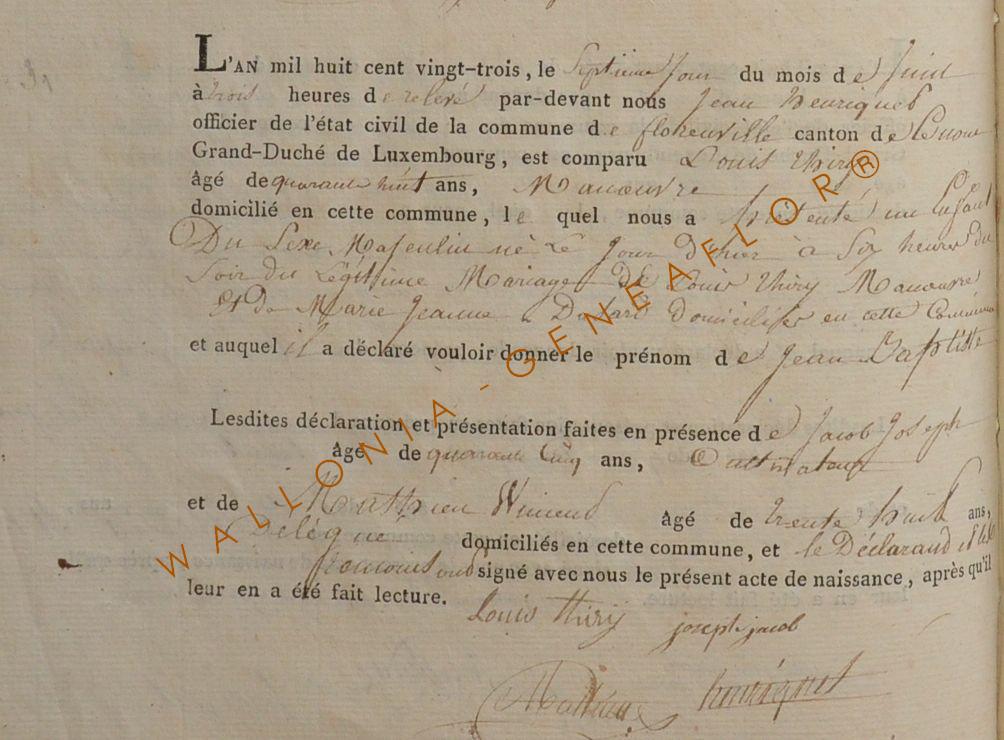 L'AN mil huit cent vingt-trois, le Septieme Jour du mois de Juin
à trois heures de relevé par-devant nous Jean henriquet
officier de l'état civil de la commune de florenville canton de
Grand-Duché de Luxembourg, est comparu Louis thiry
âgé de quarante huit ans, Manœuvre
domicilié en cette commune, le quel nous a présenté un Enfant
Du Sexe Masculin né Le Jour D'hier à Six heures du
Soir du Légitime Mariage De Louis thiry Manœuvre
Et de Marie Jeanne domiciliés en cette Commune
et auquel il a déclaré vouloir donner le prénom de Jean Baptiste
Lesdites déclaration et présentation faites en présence de Jacob Joseph
âgé de quarante Cinq ans, Cultivateur
et de Mathieu âgé de trente huit ans,
domiciliés en cette commune, et le Déclarand et les
temoins ont signé avec nous le présent acte de naissance, après qu'il
leur en a été fait lecture.
Louis thiry joseph jacob
Mathieu henriquet
WALLONIA - GENEAFLOR®